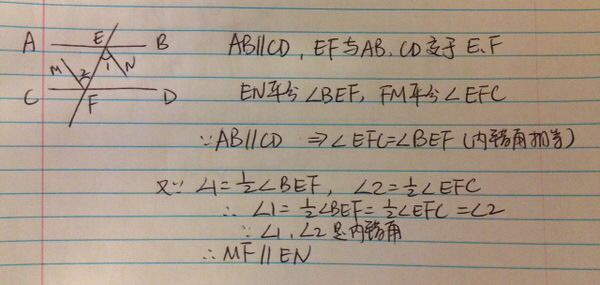 A E B
M 2 1 N
C F D
AB∥CD, EF与AB、CD交于E、F
EN平分∠BEF, FM平分∠EFC
∵AB∥CD ⇒∠EFC=∠BEF (内错角相等)
又∵ ∠1=½∠BEF, ∠2=½∠EFC
∴ ∠1=½∠BEF=½∠EFC=∠2
∵∠1、∠2是内错角
∴MF∥EN